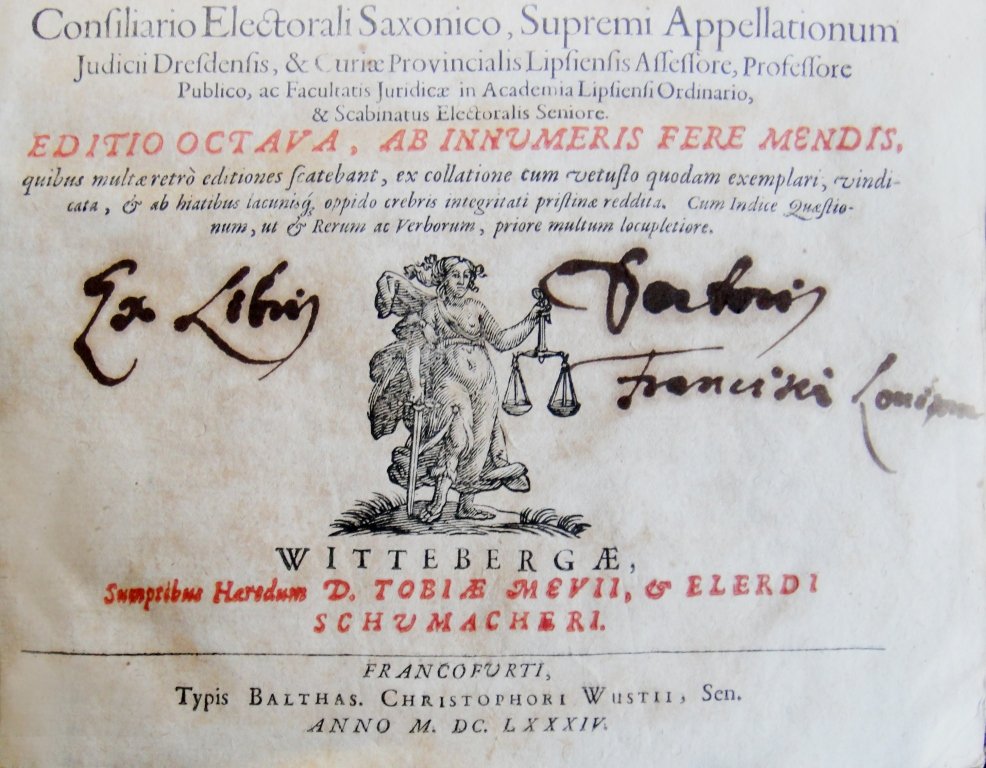 Conſiliario Electorali Saxonico, Supremi Appellationum
Judicii Dreſdenſis, & Curiæ Provincialis Lipſienſis Aſſeſſore, Profeſſore
Publico, ac Facultatis Juridicæ in Academia Lipſienſi Ordinario,
& Scabinatus Electoralis Seniore.
EDITIO OCTAVA, AB INNUMERIS FERE MENDIS,
quibus multæ retrò editiones ſcatebant, ex collatione cum vetuſto quodam exemplari, vindi-
cata, & ab hiatibus lacunisq́; oppido crebris integritati priſtinæ reddita. Cum Indice Quæſtio-
num, ut & Rerum ac Verborum, priore multum locupletiore.
Ex Libris Doctoris
Francisci
WITTEBERGÆ,
Sumptibus Hæredum D. TOBIÆ MEVII, & ELERDI
SCHUMACHERI.
FRANCOFURTI,
Typis BALTHAS. CHRISTOPHORI WUSTII, Sen.
ANNO M. DC. LXXXIV.